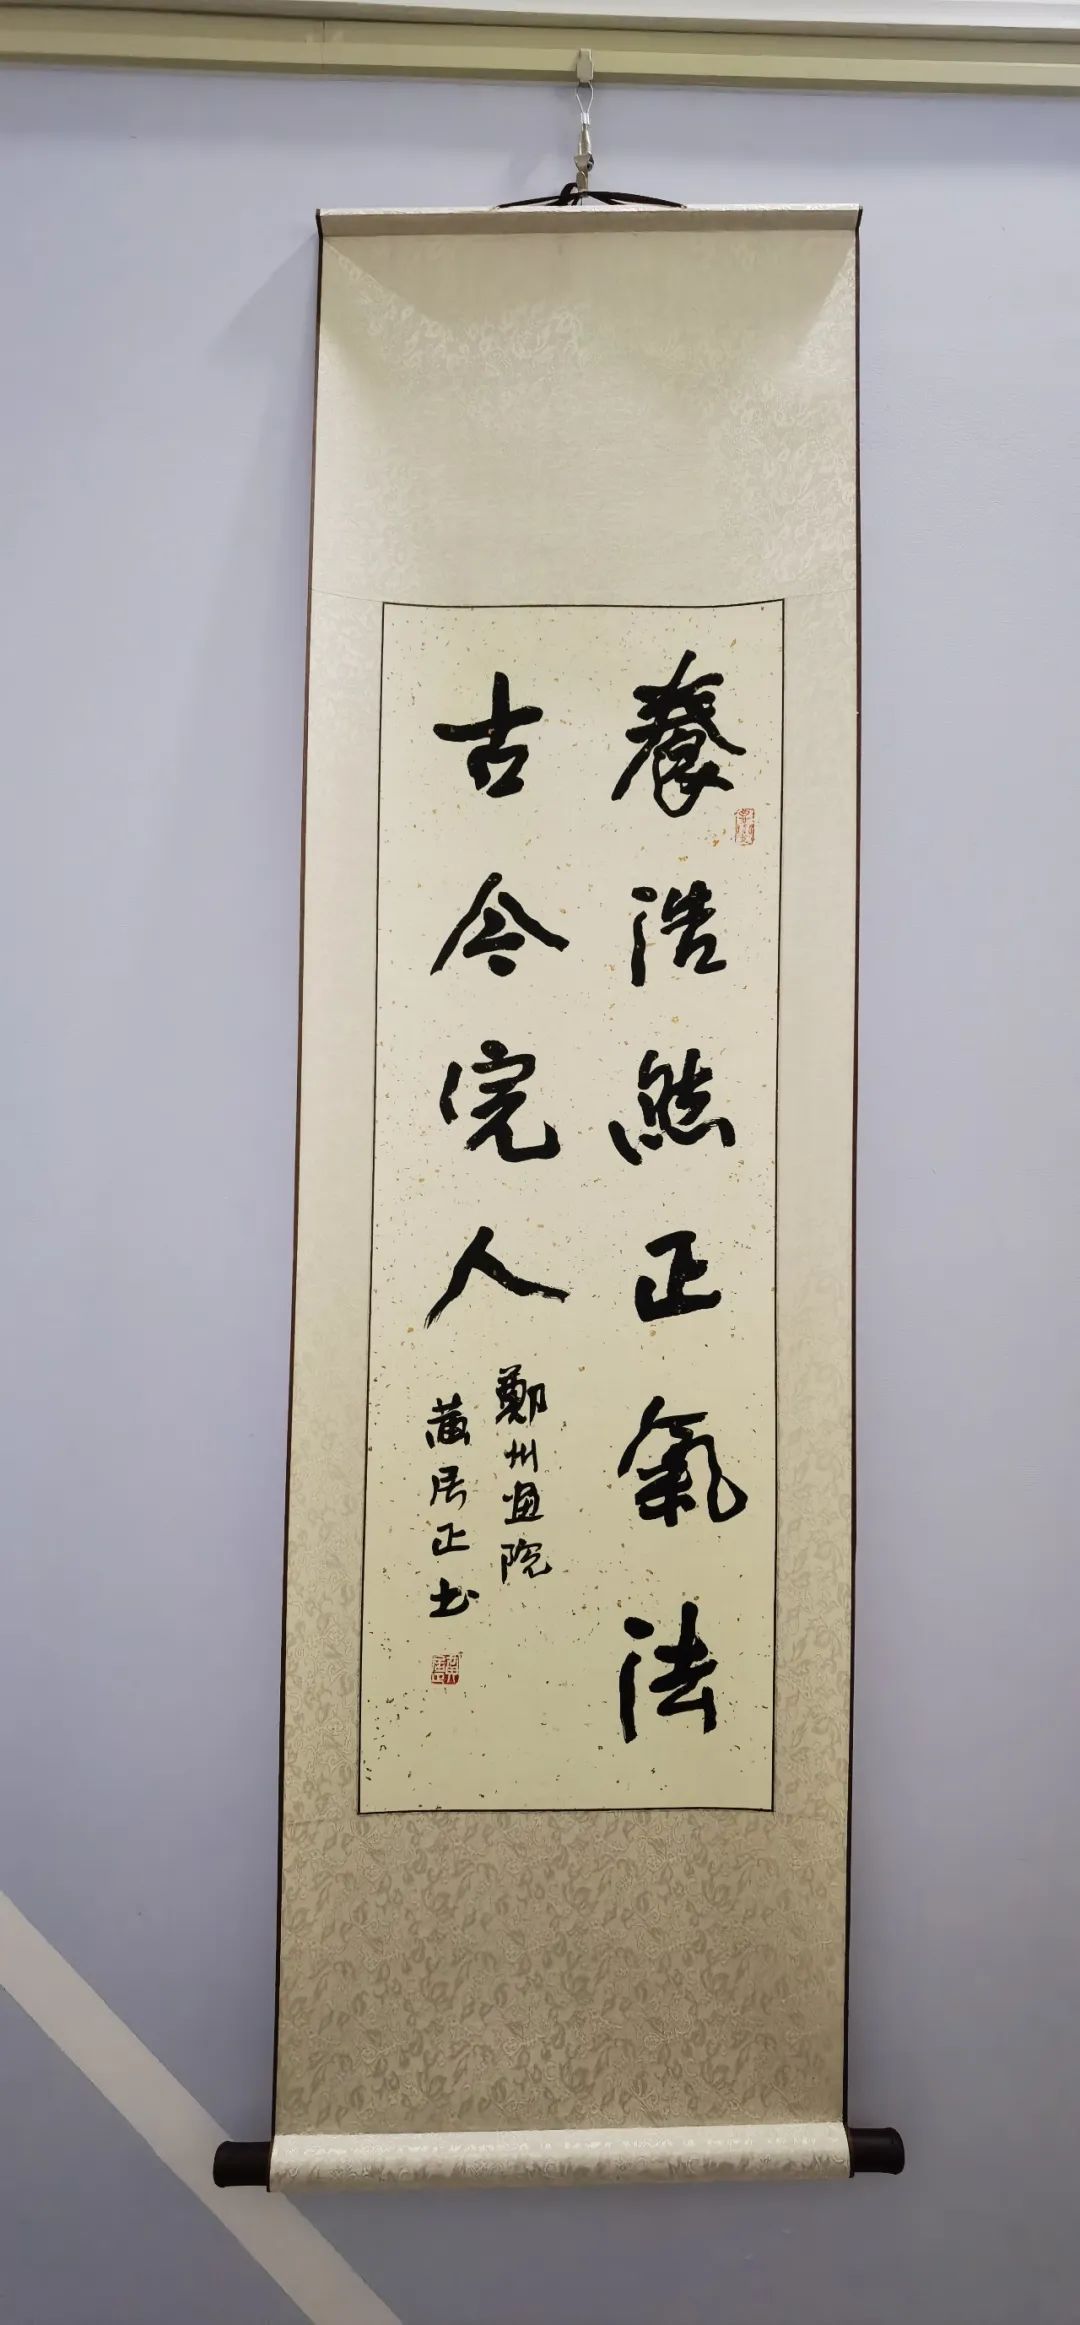 養浩然正氣法
古今完人
鄭州畫院
黃居正書